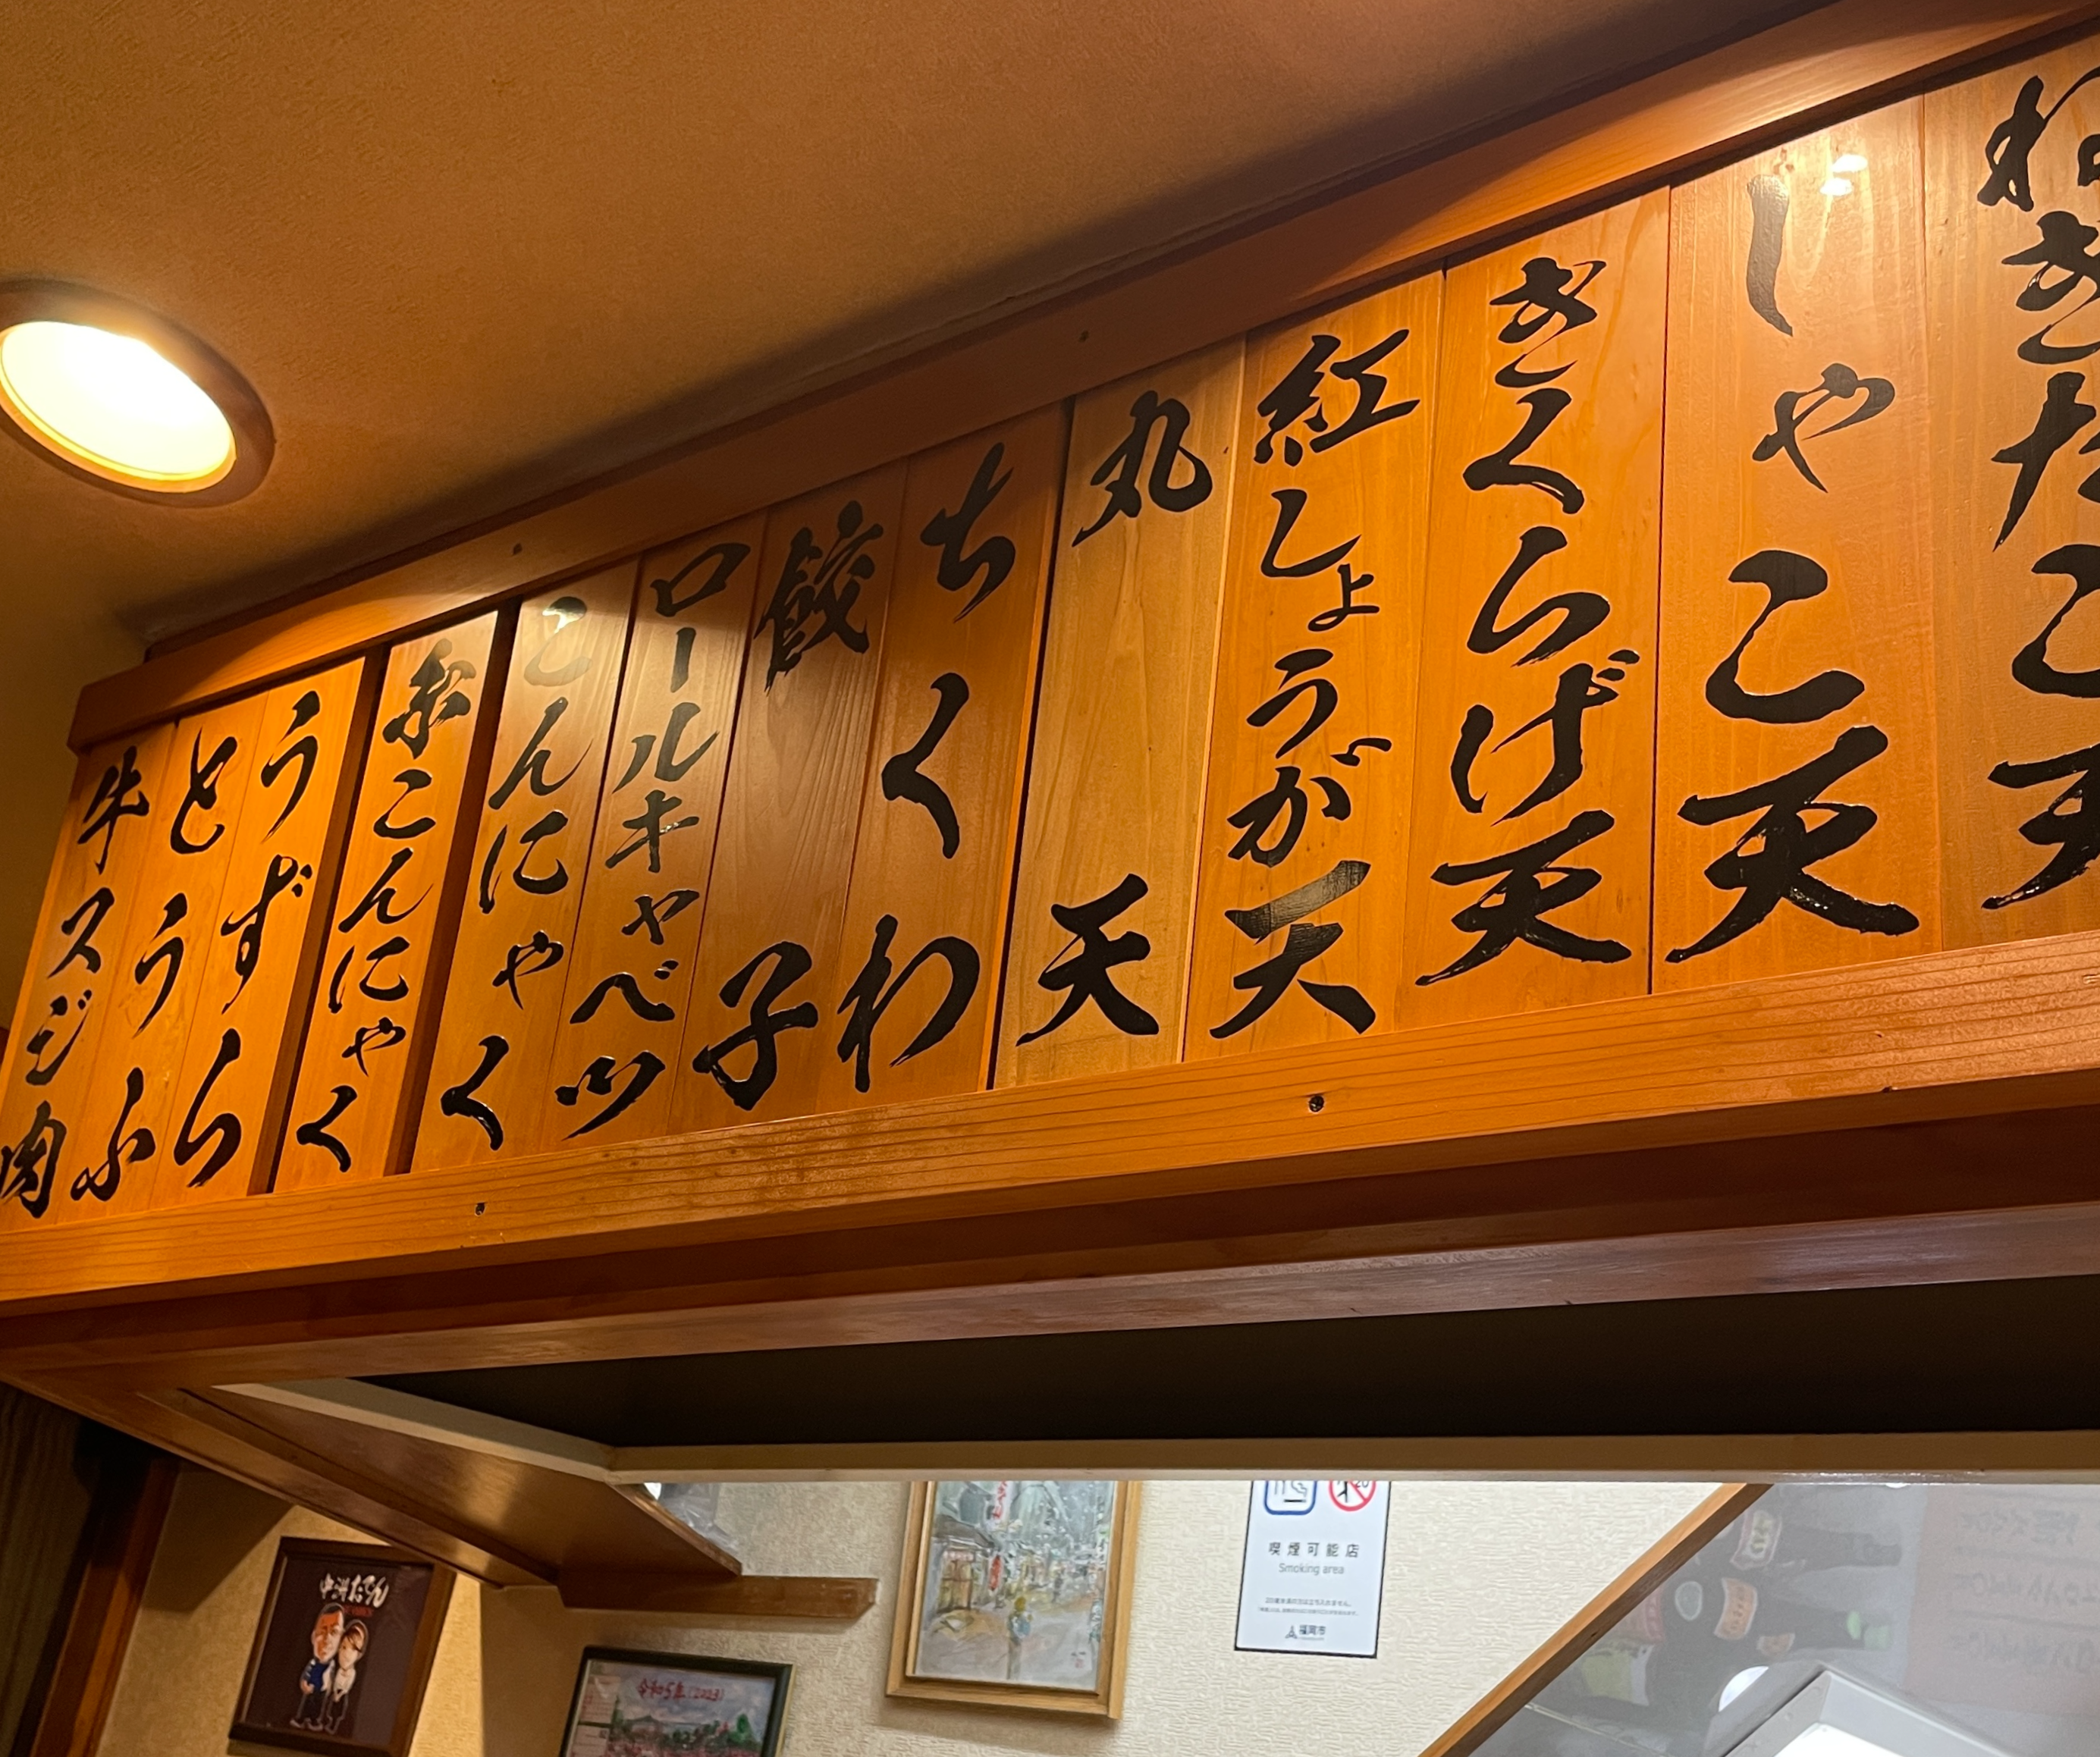 ねぎたこ天
しゃこ天
きくらげ天
紅しょうが天
丸天
ちくわ
餃子
ロールキャベツ
こんにゃく
糸こんにゃく
うずら
とうふ
牛スジ肉
中洲おでん
令和5年(2023)
喫煙可能店
Smoking area
福岡市